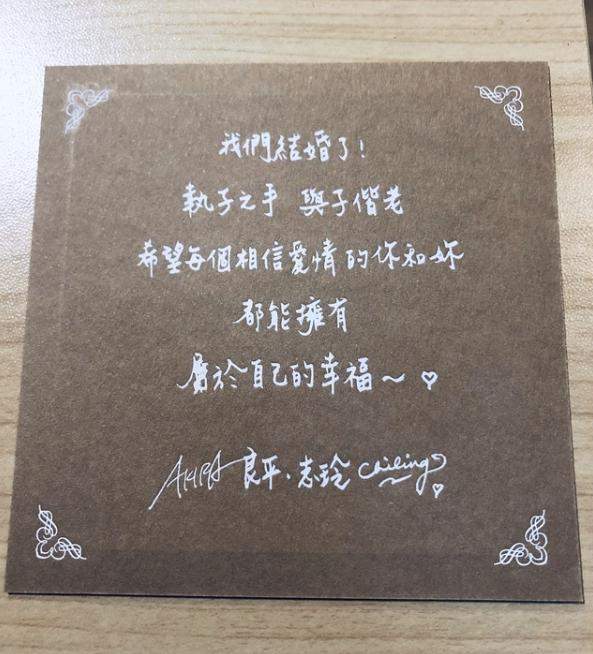 我們結婚了！
執子之手 與子偕老
希望每個相信愛情的你和妳
都能擁有
屬於自己的幸福～♡
AKIRA 良平、志玲 Chiling♡